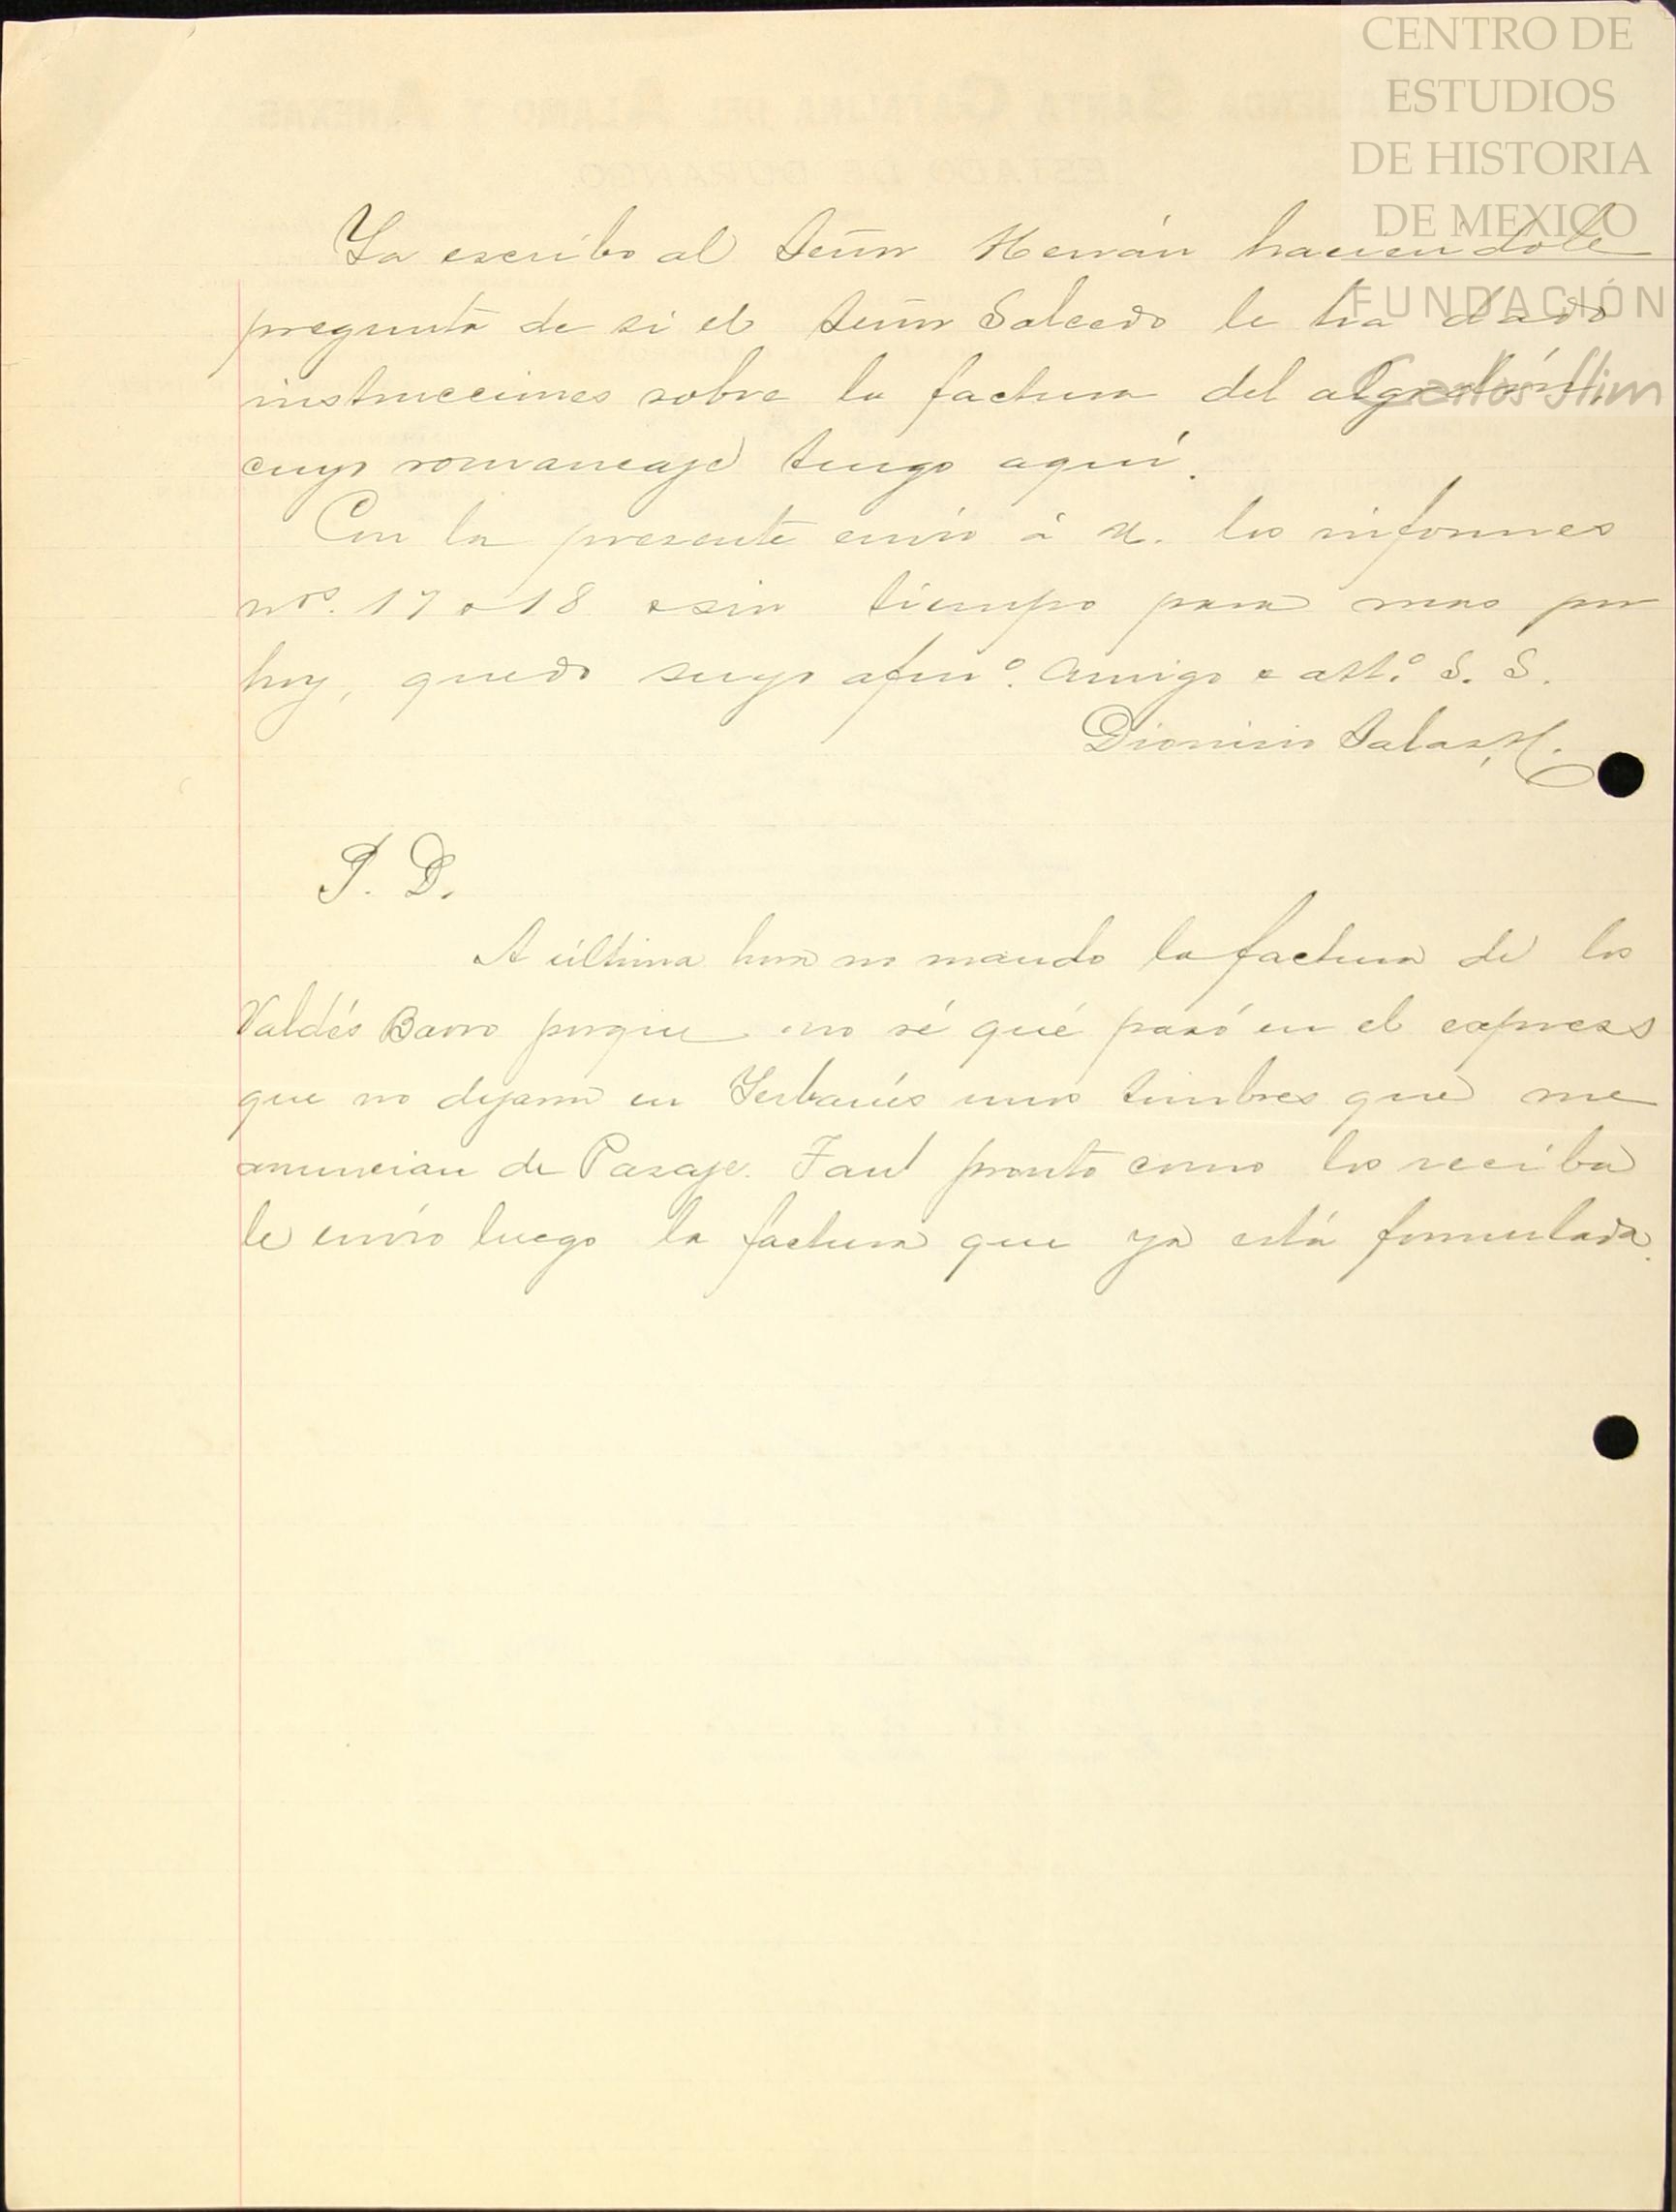 CENTRO DE
ESTUDIOS
DE HISTORIA
DE MEXICO
FUNDACIÓN
Carlos Slim
Ya escribo al Señor Herrán haciendole
pregunta de si el Señor Salcedo le ha dado
instrucciones sobre la factura del algodón,
cuyo romaneaje tengo aquí.
Con la presente envio á U. los informes
nos. 17 e 18 e sin tiempo para mas por
hoy, quedo suyo afmo. amigo e atto. S. S.
Dionisio Salas, H.
P. D.
A última hora no mando la factura de los
Valdés Barro porque no sé qué pasó en el express
que no dejaron en Yerbanís unos timbres que me
anuncian de Pasaje. Tant pronto como los reciba
le envío luego la factura que ya está formulada.